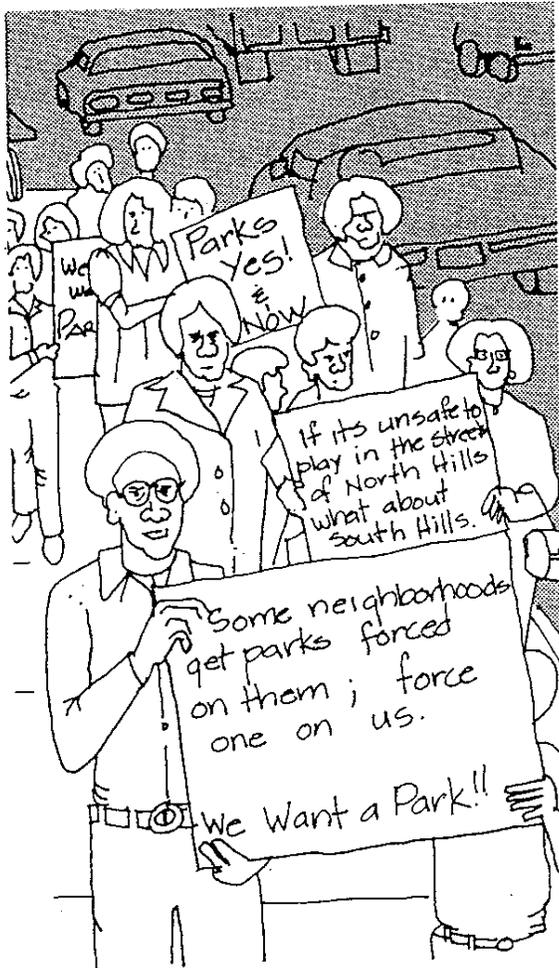 Parks
Yes!
&
NOW
We
we
PAR
If its unsafe to
play in the street
of North Hills
what about
South Hills.
Some neighborhoods
get parks forced
on them ; force
one on us.
We Want a Park!!